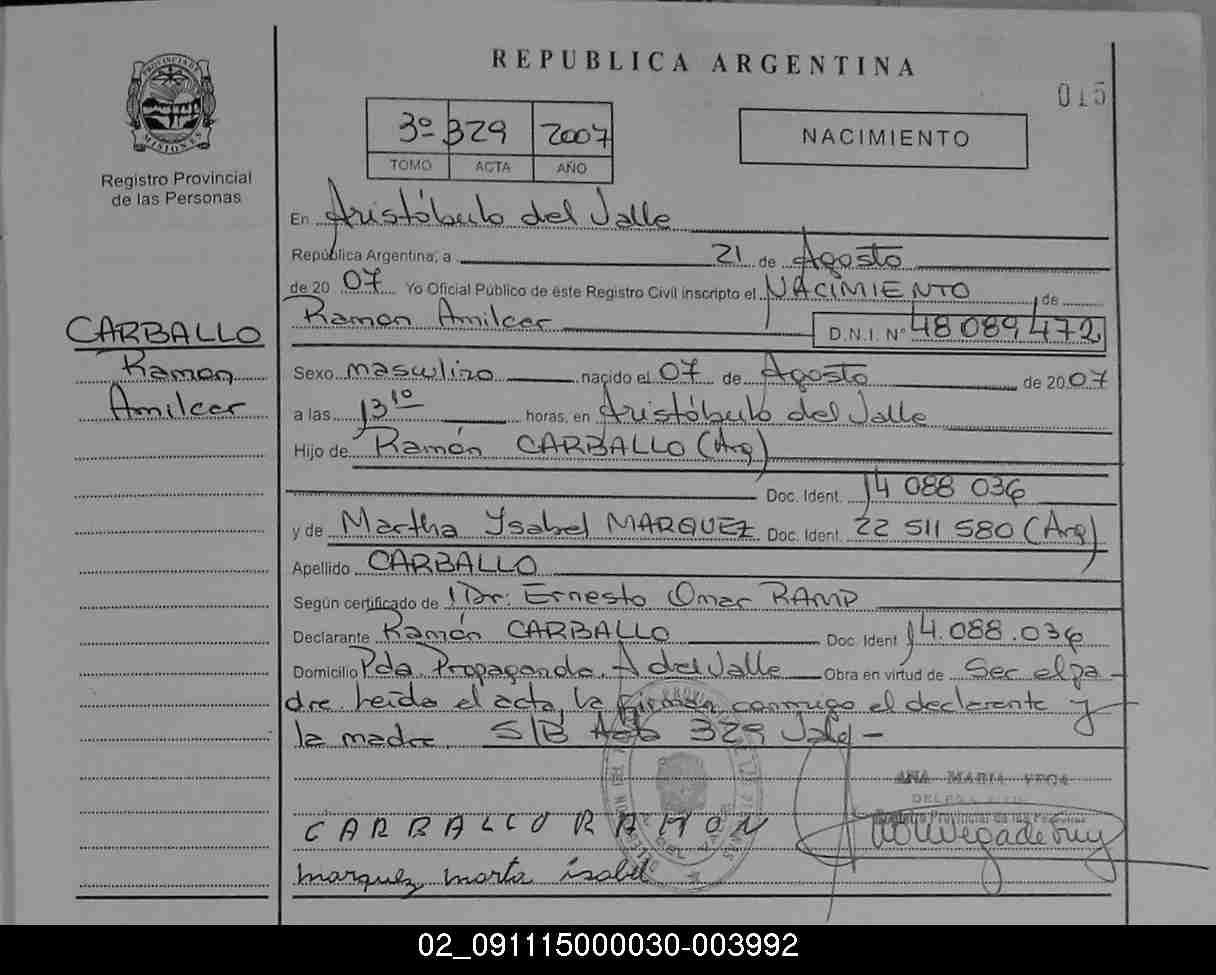 REPUBLICA ARGENTINA
015
PROVINCIA DE MISIONES
Registro Provincial
de las Personas
3º 329 2007
TOMO ACTA AÑO
NACIMIENTO
En Aristóbulo del Valle
República Argentina, a 21 de Agosto
de 20 07 Yo Oficial Público de este Registro Civil inscripto el NACIMIENTO de
Ramon Amilcar D.N.I. Nº 48 089 472
CARBALLO
Ramon
Amilcar
Sexo masculino nacido el 07 de Agosto de 20 07
a las 13 10 horas, en Aristóbulo del Valle
Hijo de Ramón CARBALLO (Arg)
Doc. Ident. 14 088 036
y de Martha Ysabel MARQUEZ Doc. Ident. 22 511 580 (Arg)
Apellido CARBALLO
Según certificado de Dr: Ernesto Omar RAMP
Declarante Ramón CARBALLO Doc. Ident 14.088.036
Domicilio Pda Propaganda. A del Valle Obra en virtud de Ser el pa-
dre. Leida el acta, la firman conmigo el declarante y
la madre. S/B 329 Vale -
ANA MARIA VEGA
Registro Provincial de las Personas
CARBALLO RAMON
marquez marta isabel
02_091115000030-003992